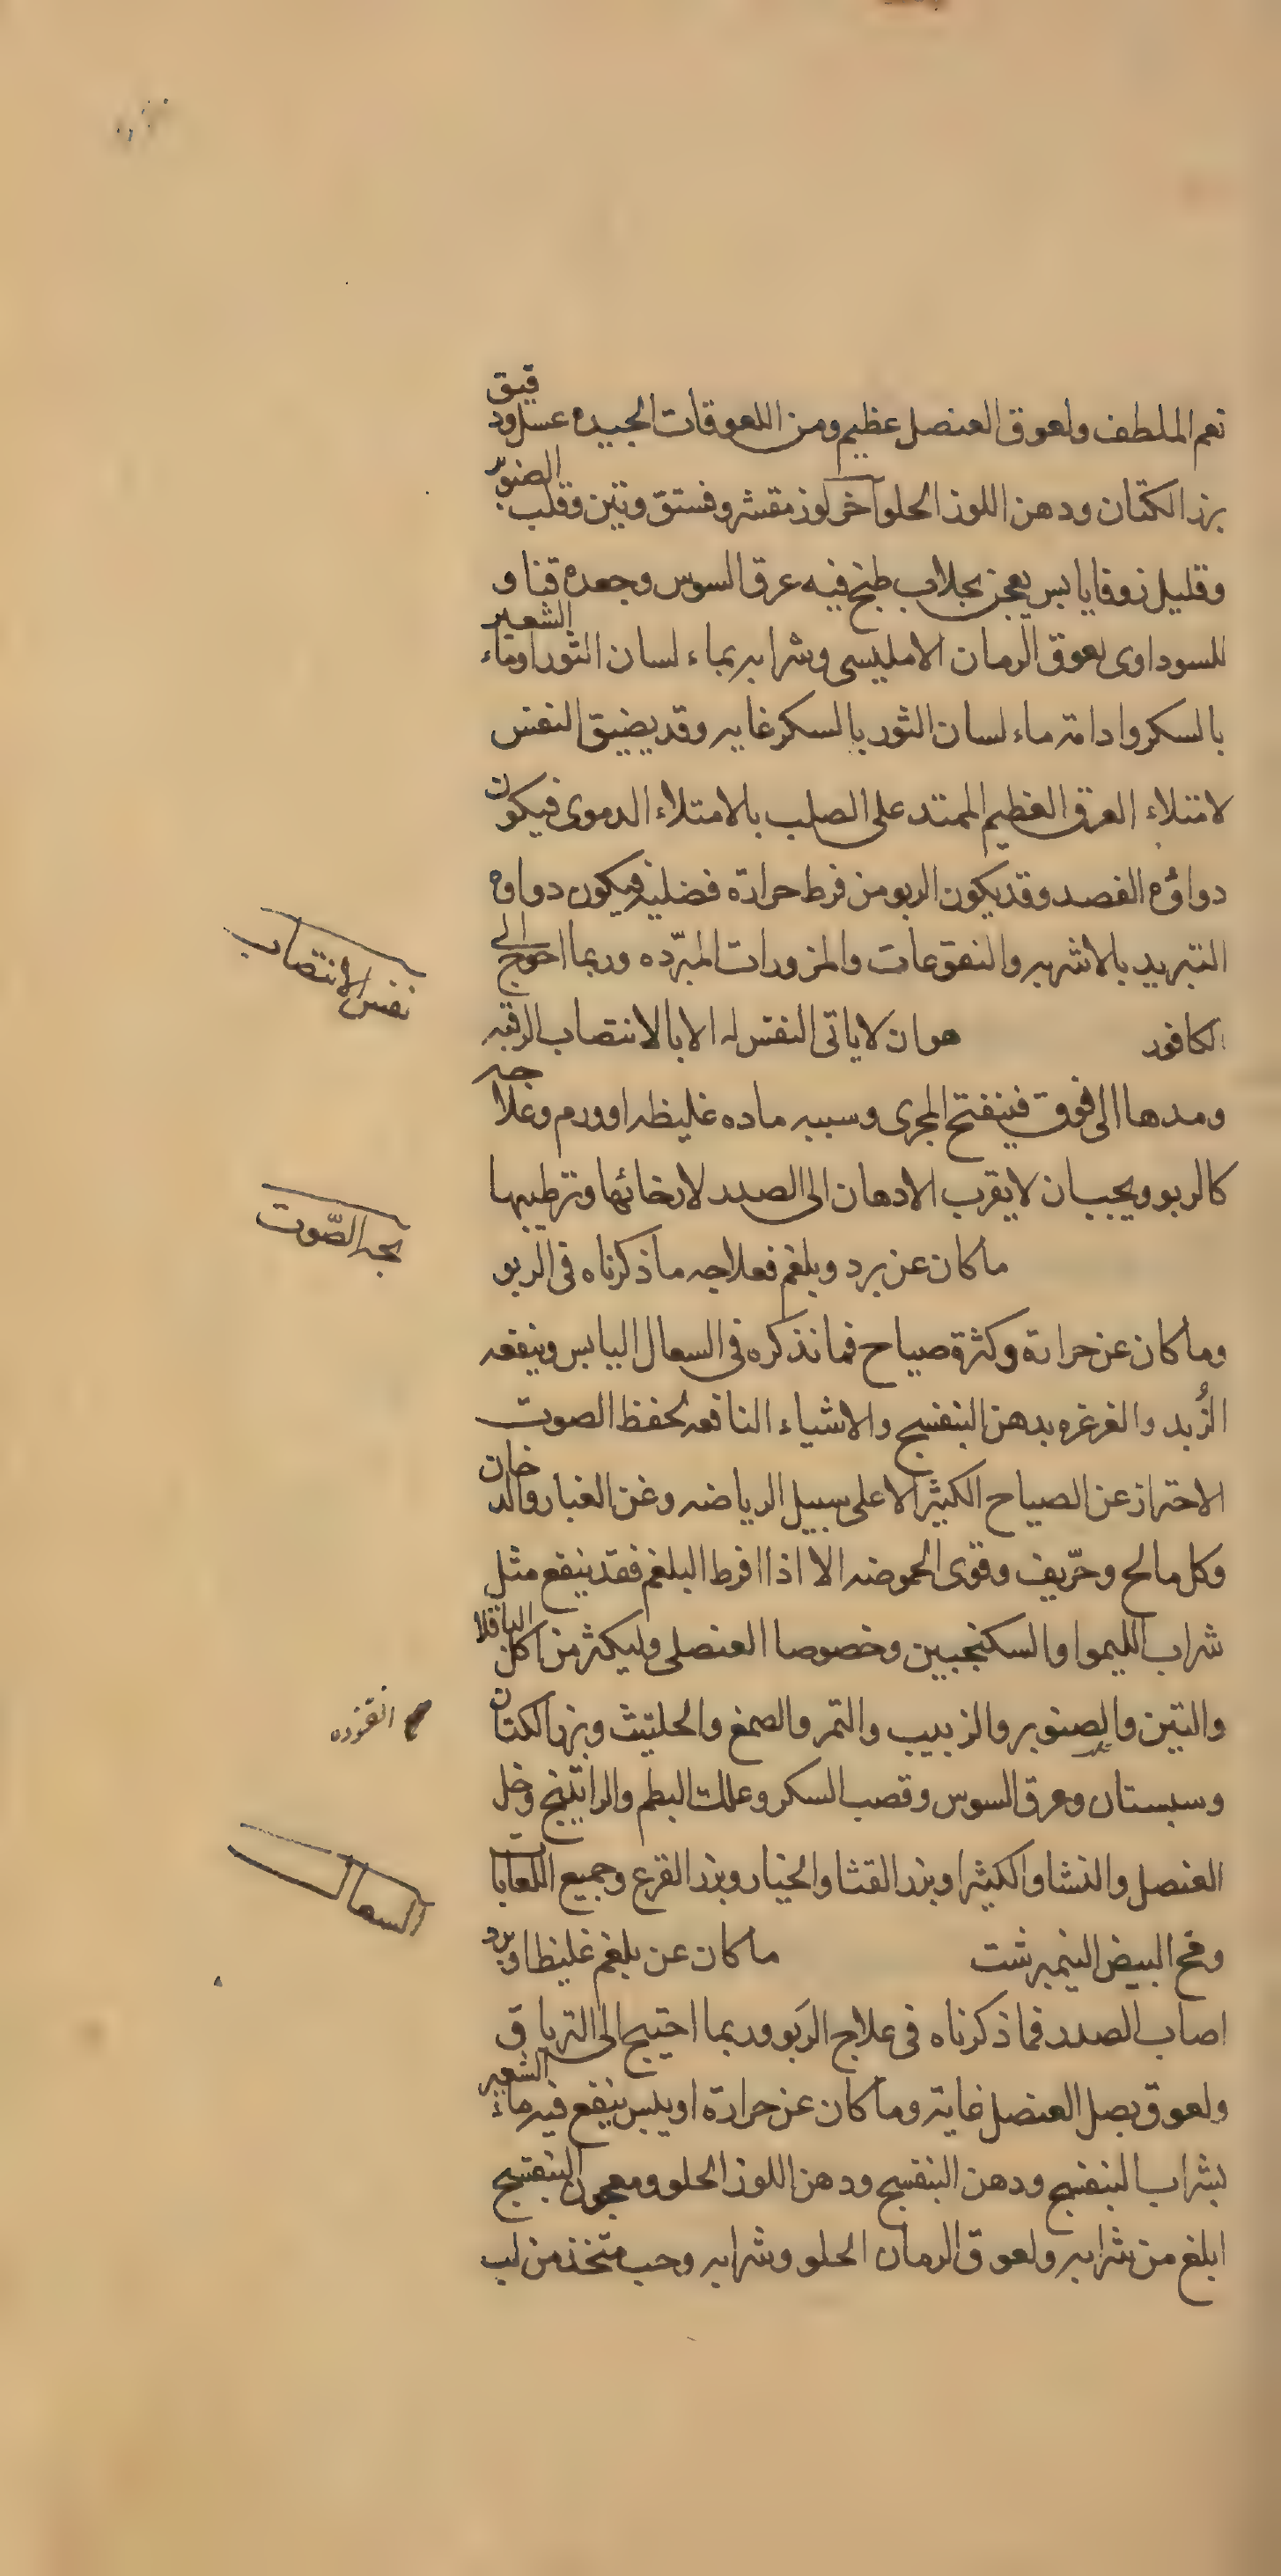 نعم الملطف ولعوق العنصل عظيم ومن اللعوقات الجيده عسل ودقيق
بزر الكتان ودهن اللوز الحلو آخر لوز مقشر وفستق وتين وقلب الصنوبر
وقليل زوفا يابس يعجن بجلاب طبخ فيه عرق السوس وجعده قنا و
للسوداوى لعوق الرمان الامليسى وشرابه بماء لسان الثور او ماء الشعير
بالسكر وادامة ماء لسان الثور بالسكر غايه وقد يضيق النفس
لامتلاء العرق العظيم الممتد على الصلب بالامتلاء الدموى فيكون
دواؤه الفصد وقد يكون الربو من فرط حرارة فضليه فيكون دواوه
التبريد بالاشربه والنقوعات والمزورات المبرّده وربما احوج الى
الكافور هو ان لا ياتى النفس له الا بالانتصاب الرقبه
نفس الانتصاب
ومدها الى فوق فينفتح المجرى وسببه ماده غليظه او ورم وعلاجه
كالربو ويجب ان لا يقرب الادهان الى الصدر لارخائها وترطيبها
بحه الصّوت
ما كان عن برد وبلغم فعلاجه ما ذكرناه فى الربو
وما كان عن حرارة وكثرة صياح فما نذكره فى السعال اليابس وينفعه
الزُبد والغرغره بدهن البنفسج والاشياء النافعه لحفظ الصوت
الاحتراز عن الصياح الكثير الا على سبيل الرياضه وعن الغبار والدخان
وكل مالح وحرّيف وقوى الحموضه الا اذا افرط البلغم فقد ينفع مثل
شراب الليموا والسكنجبين وخصوصا العنصلى وليكثر من اكل الباقلا
والتين والصنوبر والزبيب والتمر والصمغ والحلتيث وبزر الكتان
انقوزه
وسبستان وعرق السوس وقصب السكر وعلك البطم والراتينج وخل
العنصل والنشا والكثيرا وبزر القثا والخيار وبزر القرع وجميع اللعابات
السعال
ومح البيض النيمبرشت ما كان عن بلغم غليظ او برد
اصاب الصدر فما ذكرناه فى علاج الرَبو وربما احتيج الى الترياق
ولعوق بصل العنصل غاية وما كان عن حرارة او يبس ينفع فيه ماء الشعير
بشراب البنفسج ودهن البنفسج ودهن اللوز الحلو ومعجون البنفسج
ابلغ من شرابه ولعوق الرمان الحلو وشرابه وحب متخذ من لب